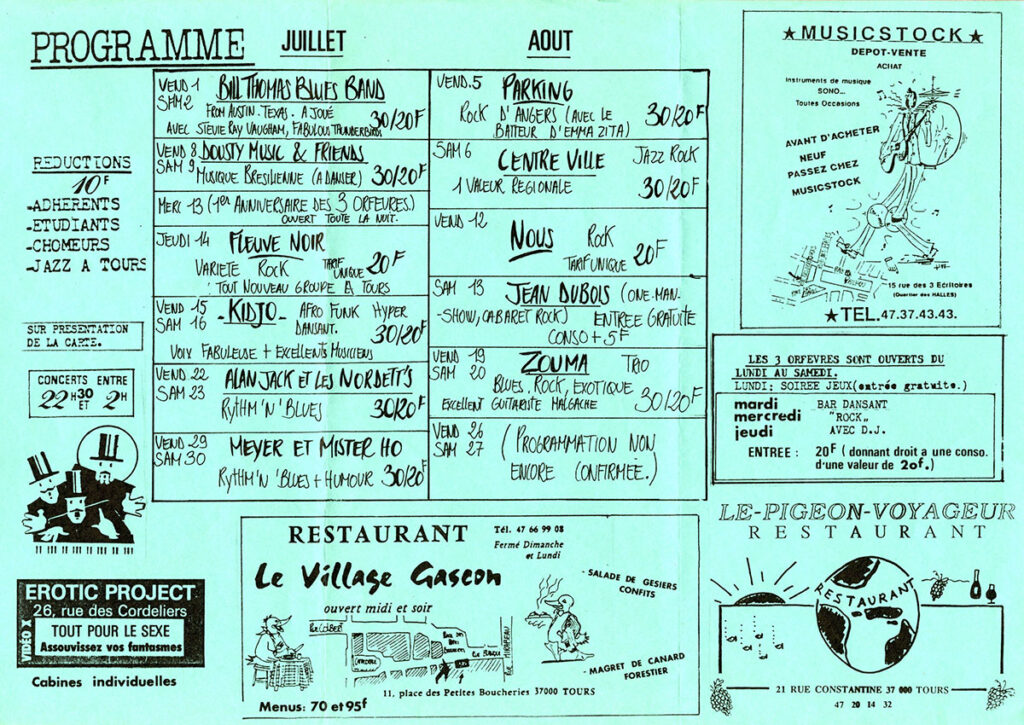 PROGRAMME JUILLET AOUT
VEND 1 BILL THOMAS BLUES BAND
SAM 2 FROM AUSTIN. TEXAS. A JOUÉ
AVEC STEVIE RAY VAUGHAM, FABULOUS THUNDERBIRDS 30/20F
VEND 8 DOUSTY MUSIC & FRIENDS
SAM 9 MUSIQUE BRESILIENNE (A DANSER) 30/20F
MERC 13 (1er ANNIVERSAIRE DES 3 ORFEVRES)
OUVERT TOUTE LA NUIT.
JEUDI 14 FLEUVE NOIR
VARIETE ROCK TARIF UNIQUE 20F
: TOUT NOUVEAU GROUPE A TOURS
VEND 15 - KIDJO - AFRO FUNK HYPER
SAM 16 DANSANT. 30/20F
VOIX FABULEUSE + EXCELLENTS MUSICIENS
VEND 22 ALAN JACK ET LES NORDETT'S
SAM 23 RYTHM 'N' BLUES 30/20F
VEND 29 MEYER ET MISTER HO
SAM 30 RYTHM 'N' BLUES + HUMOUR 30/20F
VEND.5 PARKING
ROCK D'ANGERS (AVEC LE
BATTEUR D'EMMA ZITA) 30/20F
SAM 6 CENTRE VILLE JAZZ ROCK
1 VALEUR REGIONALE 30/20F
VEND 12 NOUS ROCK
TARIF UNIQUE 20F
SAM 13 JEAN DUBOIS (ONE-MAN-
-SHOW, CABARET ROCK) ENTREE GRATUITE
CONSO + 5F
VEND 19 ZOUMA TRIO
SAM 20 BLUES. ROCK, EXOTIQUE
EXCELLENT GUITARISTE MALGACHE 30/20F
VEND 26 (PROGRAMMATION NON
SAM 27 ENCORE CONFIRMEE.)
REDUCTIONS
10F
-ADHERENTS
-ETUDIANTS
-CHOMEURS
-JAZZ A TOURS
SUR PRESENTATION
DE LA CARTE.
CONCERTS ENTRE
22H30 ET 2H
EROTIC PROJECT
26, rue des Cordeliers
VIDÉO X
TOUT POUR LE SEXE
Assouvissez vos fantasmes
Cabines individuelles
RESTAURANT Tél. 47 66 99 08
Fermé Dimanche
et Lundi
Le Village Gascon
ouvert midi et soir
- SALADE DE GESIERS
CONFITS
- MAGRET DE CANARD
FORESTIER
11, place des Petites Boucheries 37000 TOURS
Menus: 70 et 95f
★ MUSICSTOCK ★
DEPOT-VENTE
ACHAT
Instruments de musique
SONO...
Toutes Occasions
AVANT D'ACHETER
NEUF
PASSEZ CHEZ
MUSICSTOCK
15 rue des 3 Ecritoires
(Quartier des HALLES)
★TEL.47.37.43.43.
LES 3 ORFEVRES SONT OUVERTS DU
LUNDI AU SAMEDI.
LUNDI: SOIREE JEUX(entrée gratuite.)
mardi BAR DANSANT
mercredi "ROCK„
jeudi AVEC D.J.
ENTREE : 20F ( donnant droit a une conso.
d'une valeur de 20f.)
LE-PIGEON-VOYAGEUR
RESTAURANT
RESTAURANT
21 RUE CONSTANTINE 37 000 TOURS
47 20 14 32